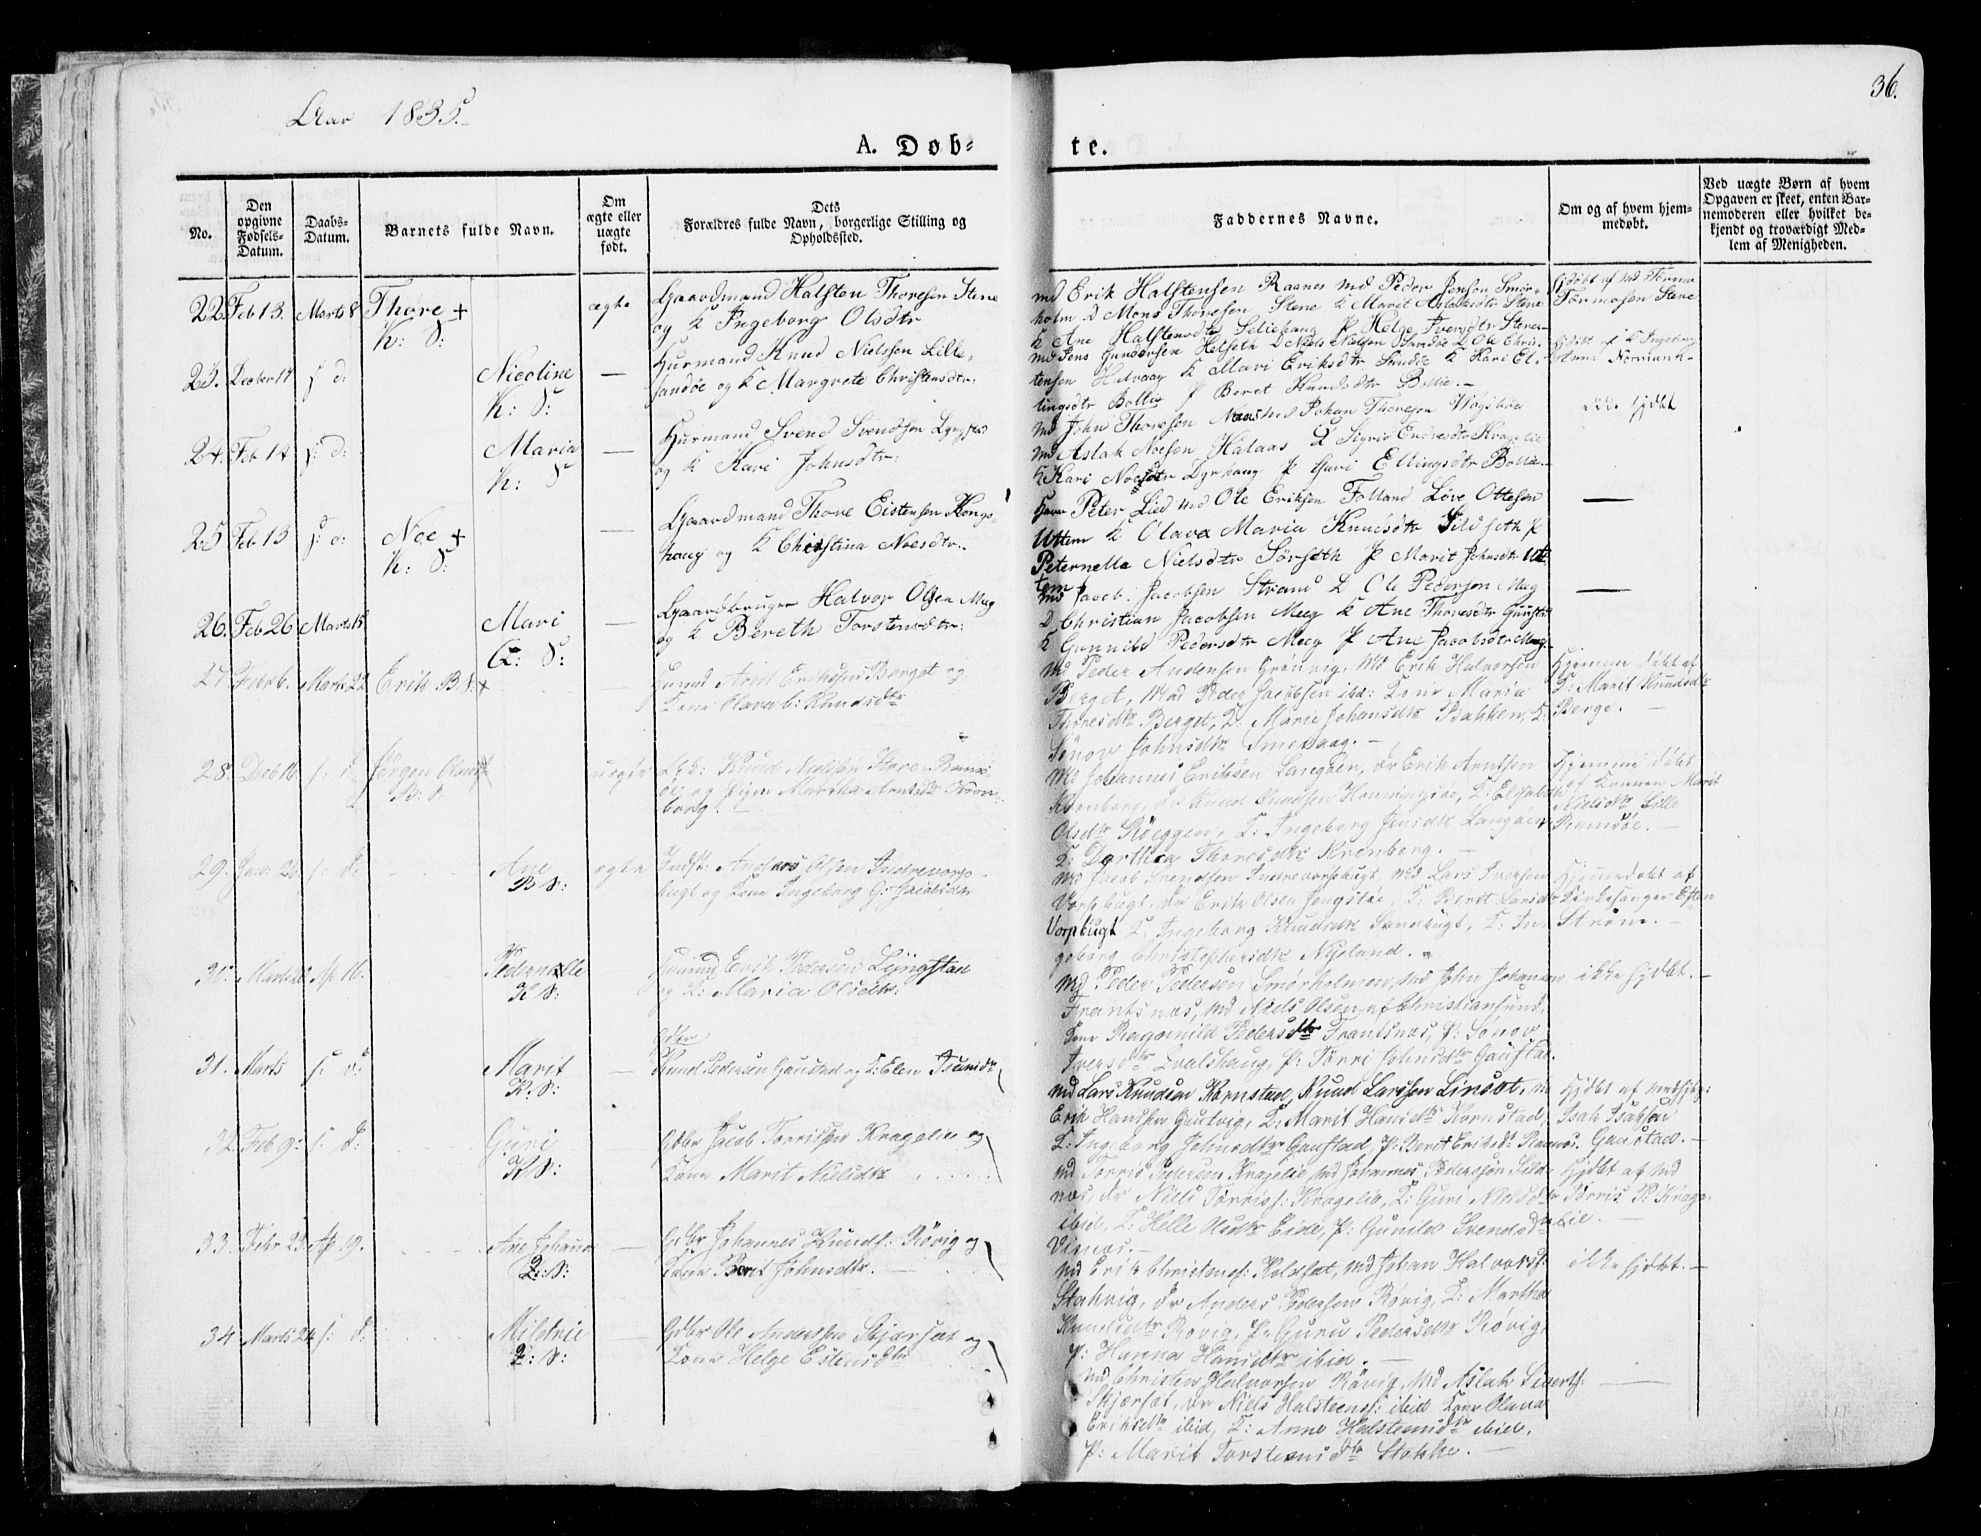 36.
Aar 1835.
A. Døb- te.
No.
Den opgivne Fødsels-Datum.
Daabs-Datum.
Barnets fulde Navn.
Om ægte eller uægte født.
Dets Forældres fulde Navn, borgerlige Stilling og Opholdssted.
Faddernes Navne.
Om og af hvem hjemmedøbt.
Ved uægte Børn af hvem Opgaven er skeet, enten Barnemoderen eller hvilket bekjendt og troværdigt Medlem af Menigheden.
22 Feb 13. Marts 8 Thore + K: S: ægte
Gaardmand Halsten Thoresen Stene
og K Ingeborg Olsdtr
md Erik Halstensen Raanes md Peder Jensen Smør-
holm D Mons Thoresen Stene K Marit Aslaksdtr Stene
K Ane Halstensdtr Seliehaug P Helge Iversdtr Stene
Tormosen Stene
23. s: d: Nicoline K: S: —
Huusmand Knud Nielsen Lille-
sandøe og K Margrete Christensdtr
md Jens Gundersen Helseth D Niels Nielsen Sandøe D Ole Chris-
tensen Helvaag K Mari Eriksdtr Sandøe K Kari El-
lingsdtr Bollie P Beret Knudsdtr Bollie.—
24. Feb 14 s: d: Maria K: S —
Huusmand Svend Svendsen Lyngstad
og K Kari Johnsdtr:
md John Thoresen Naas md Johan Thoresen Vogsbøe
md Aslak Noesen Halaas Sigrid Endresdtr Kragelie
K Kari Noesdtr Dyrhaug P Guri Ellingsdtr Bollie
ikke hjdøbt
25 Feb 13 s: d: Noe + K: S: —
Gaardmand Thore Eistensen Kongs-
haug og K Christina Noesdtr.
Herr Peter Lied md Ole Eriksen Folland Løve Ottesen
Uttem K Olava Maria Knudsdtr Sildseth P
Peternella Nielsdtr Sørseth P Marit Johnsdtr Ut-
tem —
26. Feb 26 Marts 15 Mari K: S: —
Gaardbruger Halvor Olsen Meeg
og K Bereth Torstensdtr:
md Jacob Jacobsen Strand D Ole Pedersen Meeg
D Christian Jacobsen Meeg K Ane Thoresdtr
K Gunnild Pedersdtr Meeg P Ane Jacobsdtr Meeg
—
27. Marts 22 Erik B S: +
Arnt Eriksen Berget og
Kone Olava Knudsdtr
Md Peder Andersen Grønvig, Md Erik Halvorsen
Berget, Md Peder Jacobsen ibd: Kone Maria
Thoresdtr Berget, K: Marie Johansdtr Bakken, K:
Sønov Johnsdtr Smevaag.—
Hjemme døbt af
K: Marit Knudsdtr
Berge.—
28. Decb 16. s: d: Jørgen Olaus B: S: uægte
Knud Nielsen Store Rams-
øe og Pigen Martha Arntsdtr Kron-
borg.—
Md Johannes Eriksen Langøen, dr Erik Arntsen
Kronborg, dr Knud Knudsen Honningsøe, K: Elisabeth
Olsdtr Skjeggen, K: Ingeborg Jensdtr Langøen
K: Dorthea Thoresdtr Kronborg.—
Hjemme døbt
af Konen Marit
Nielsdtr Lille
Ramsøe.—
29. Jan: 26 s: d: Ane B S: ægte
Anders Olsen Indrevorp-
bugt og Kone Ingeborg G: Jacobsdtr
Md Jacob Svendsen Indrevorpbugt, Md Lars Iversen
Vorpbugt, dr Erik Olsen Jengstøe, K: Berit Larsdtr
Vorpbugt K: Ingeborg Knudsdtr Sandbugt, K: In-
geborg Christophersdtr Nyeland.
Hjemmedøbt af
Kirkesanger Esten
Strøm.—
30. Ap 16. Pedernelle K S:
Erik Pedersen Lyngstad
og K: Maria Olsdtr:
Md Peder Pedersen Smørholmen, md John Johansen
Frantsnæs, md Niels Olsen af Christiansund,
Kone Ragnhild Pedersdtr Frantsnæs, P: Sønov
Iversdtr Qvalshaug, P: Torri Johnsdtr Gaustad.
ikke hjdøbt.—
31. Marts s: d: Marit K: S: —
Gdbr
Knud Pedersen Gaustad og K: Elen
md Lars Knudsen Kornstad, Knud Larssen Linset, m
Erik Hansen Gustvig, K: Marit Hansdtr Kornstad,
K: Ingeborg Johnsdtr Gaustad, P: Berit Eriksdtr Raanes.
Isak Isaksen
Gaustad.—
32 Feb 9: s: d: Guri K S: —
Gdbr Jacob Torrissen Kragelie og
Kone Marit Nielsdtr
md Torris Pedersen Kragelie md Johannes Pedersen Sild-
næs, dr Niels Torriss: Kragelie, K: Guri Nielsdtr
ibid, K: Helle Olsdtr Eide, P: Gunild Svendsdtr
Visnæs.—
Hjdøbt af md
Torris P: Krage-
lie.—
33. Febr 23. Ap 19. Ane Johanna K: S: —
Gdbr Johannes Knuds: Røvig og
Kone Beret Johnsdtr.—
md Erik Christens: Holdsæt, md Johan Halvords:
Stokvig, dr Anders Pedersen Røvig, K: Martha
Knudsdtr Røvig, P: Guru Pedersdtr Røvig,
P: Hanna Hansdtr ibid.—
ikke hjdøbt.—
34 Marts 24 s: d: Mildrie K: S: —
Gdbr Ole Andersen Skjærsæt og
Kone Helge Estensdtr
md Christen Halvorsen Røvig, md Aslak Siverts:
Skjærsæt, dr Niels Halsteens: ibid Kone Olava
Eriksdtr ibid, K: Anne Halsteensdtr ibid,
P: Marit Torsteensdtr Stokke.—